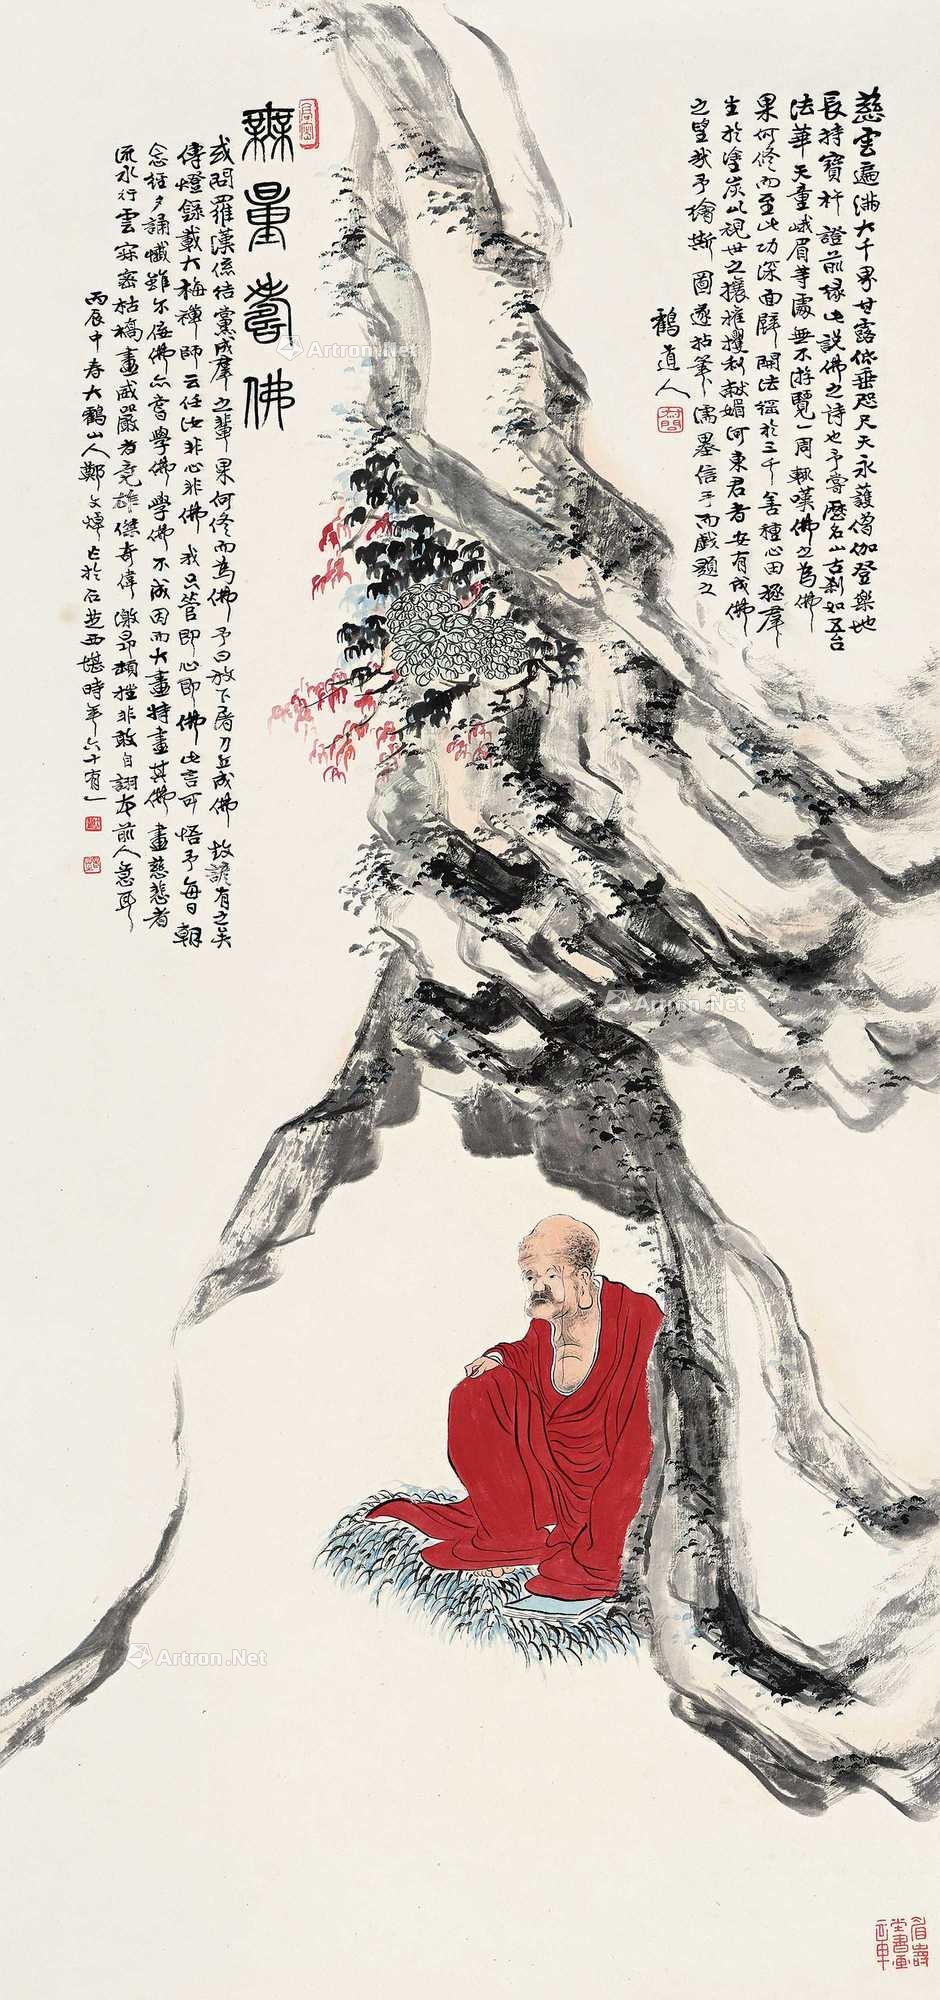 慈雲遍滿大千界甘露低垂咫尺天永護僧伽登樂地
長持寶杵證前緣此說佛之詩也予嘗歷名山古刹如五台
法華天童峨眉等處無不游覽一周輒嘆佛之為佛
果何修而至此功深面壁開法徑於三千善種心田拯羣
生於塗炭以視世之攘權攫利獻媚河東君者安有成佛
之望哉予繪斯圖遂拈筆濡墨信手而戲題之
鶴道人
無量壽佛
或問羅漢係結黨成羣之輩果何修而為佛予曰放下屠刀立成佛故諺有之矣
傳燈錄載大梅禪師云任汝非心非佛我只管即心即佛此言可悟予每日朝
念經夕誦懺雖不佞佛亦嘗學佛學佛不成因而大畫特畫其佛畫慈悲者
流水行雲寂寥枯槁畫威嚴者竞雄傑奇偉激昂頓挫非敢自詡於前人意耳
丙辰中春大鶴山人鄭文焯作於石芝西堪時年六十有一
Artron.Net
Artron.Net
Artron.Net